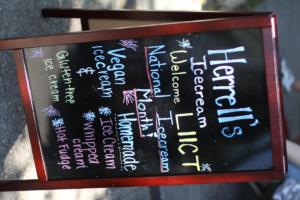 Herrell's
Icecream
Welcome LLICT
National Icecream
Month!
Vegan
icecream
&
Gluten-free
ice cream
Homemade
Ice Cream
Whipped
cream
Hot Fudge